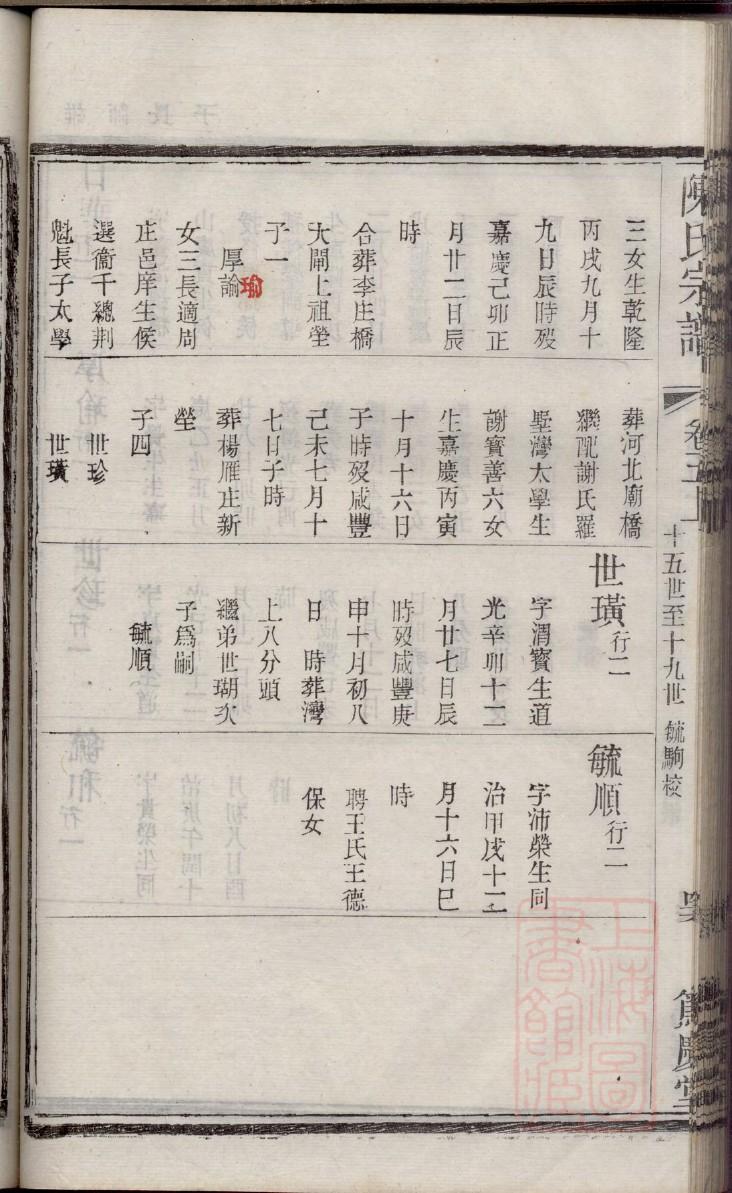 陳氏宗譜
卷五上
十五世至十九世
毓駒校
篤慶堂
三女生乾隆
丙戌九月十
九日辰時歿
嘉慶己卯正
月廿二日辰
時
合葬李庄橋
大閘上祖塋
子一
厚論
瑜
女三長適周
庄邑庠生侯
選衞千總荆
魁長子太學
葬河北廟橋
繼配謝氏羅
墅灣太學生
謝寳善六女
生嘉慶丙寅
十月十六日
子時歿咸豐
己未七月十
七日子時
葬楊雁庄新
塋
子四
世珍
世璜
世璜行二
字渭賓生道
光辛卯十二
月廿七日辰
時歿咸豐庚
申十月初八
日 時葬灣
上八分頭
繼弟世瑚次
子爲嗣
毓順
毓順行二
字沛榮生同
治甲戌十二
月十六日巳
時
聘王氏王德
保女
上海圖
書館臧